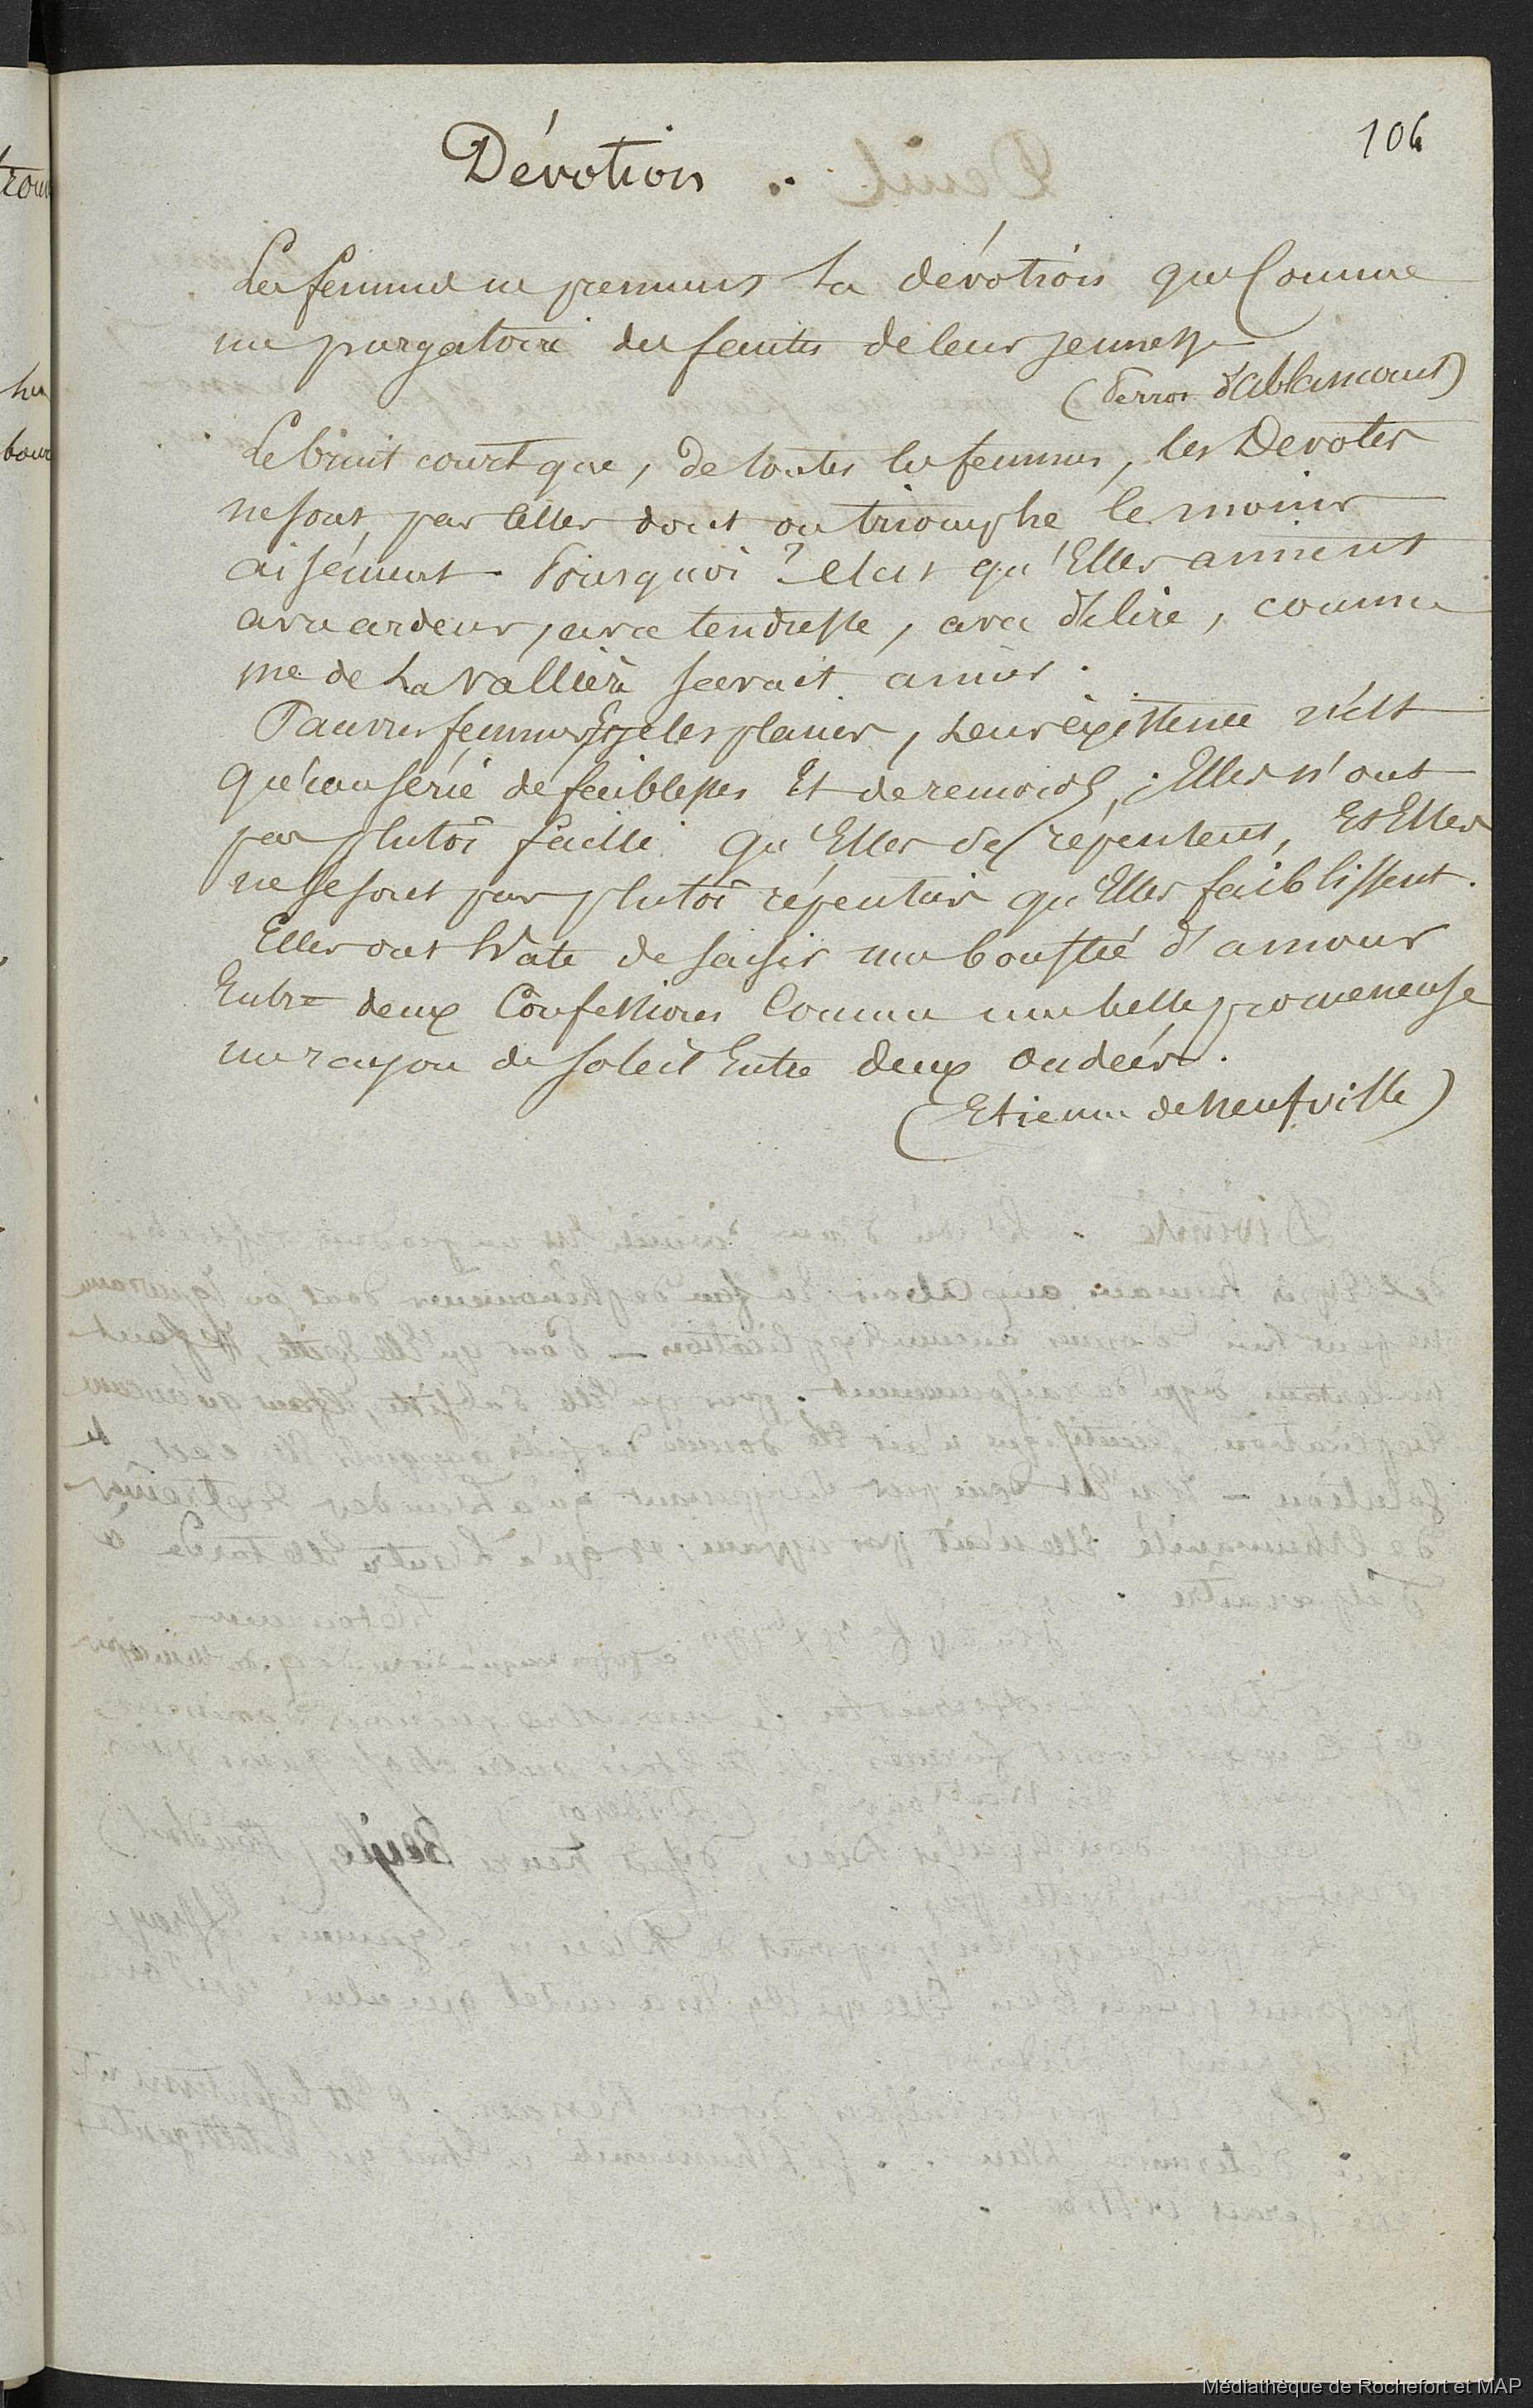 106
Dévotion.
Les femmes ne prennent la dévotion que Comme
un purgatoire des fautes de leur jeunesse
(Perrot d'Ablancourt)
Le bruit court que, de toutes les femmes, les Devotes
ne sont pas celles dont on triomphe le moins
aisément. Pourquoi ? C'est qu'Elles aiment
avec ardeur, avec tendresse, avec délire, comme
me de La Vallière scavait aimer.
Pauvres femmes je les plains, Leur existence n'est
qu'causerie de faiblesses Et de remords ; Elles n'ont
pas plutôt failli qu'Elles se répentent, Et Elles
ne se sont pas plutôt répenties qu'Elles faiblissent.
Elles ont hâte de saisir une bouffée d'amour
Entre deux Confessions Comme une belle promeneuse
un rayon de soleil Entre deux ondées.
(Etienne de Neufville)
Médiathèque de Rochefort et MAP